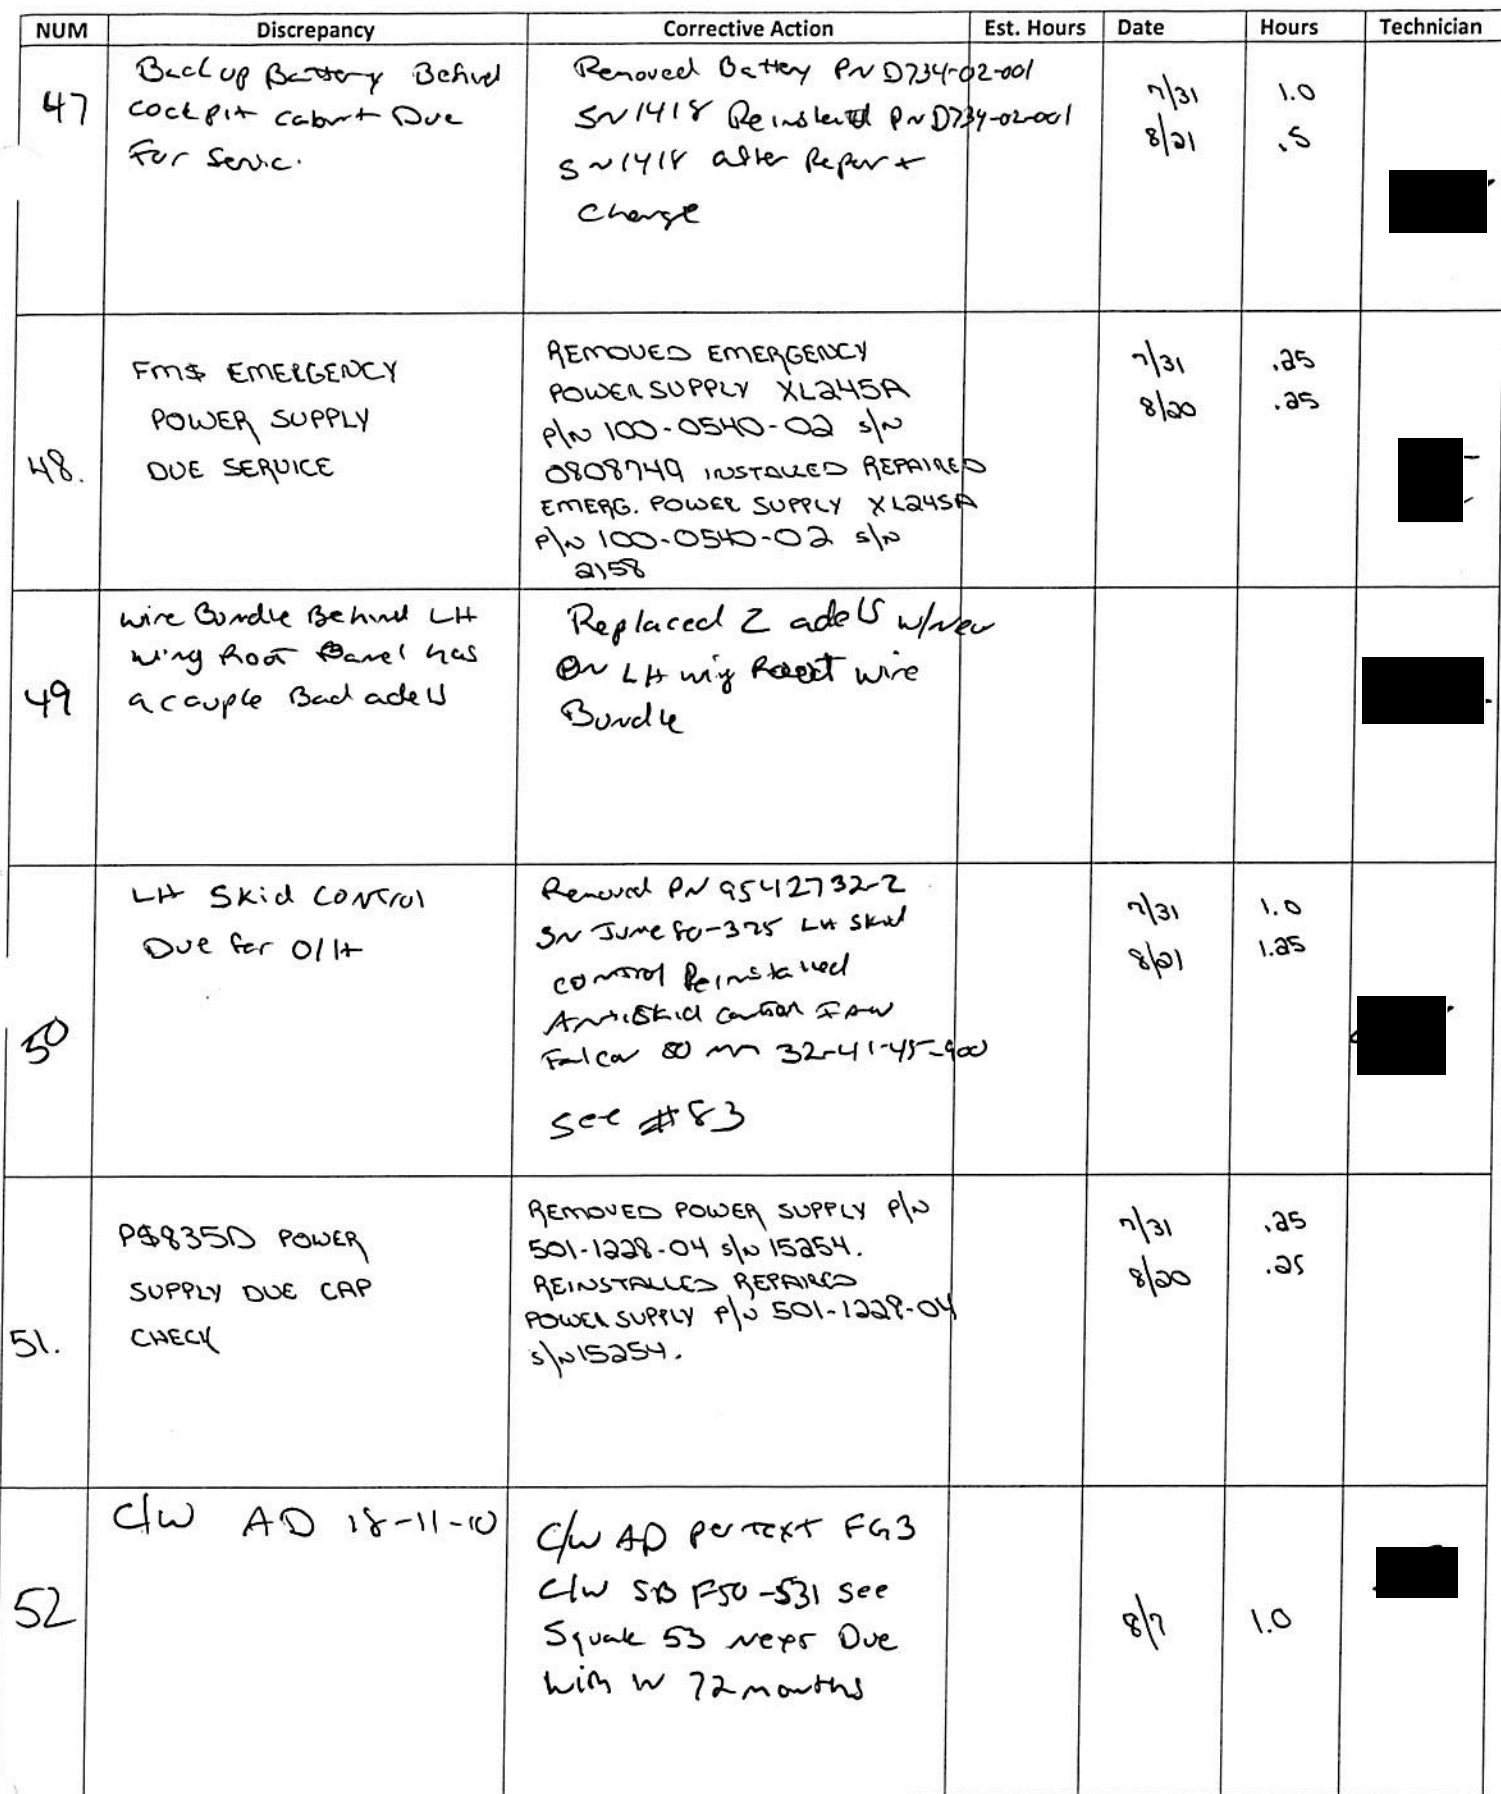 NUM Discrepancy Corrective Action Est. Hours Date Hours Technician
47
Back up Battery Behind
cockpit cabnt Due
For Servic.
Removed Battery PN D734-02-001
SN1418 Reinstalled PN D734-02-001
SN1418 after Repar +
Charge
7/31 1.0
8/21 .5
48.
FMS EMERGENCY
POWER SUPPLY
DUE SERVICE
REMOVED EMERGENCY
POWER SUPPLY XL245A
P/N 100-0540-02 S/N
0808749 INSTALLED REPAIRED
EMERG. POWER SUPPLY XL245A
P/N 100-0540-02 S/N
2158
7/31 .25
8/20 .25
49
wire Bundle Behind LH
wing Root Panel has
a couple Bad adels
Replaced 2 adels w/New
on LH wig Root wire
Bundle
50
LH Skid Control
Due for O/H
Removed PN 9542732-2
SN June 80-375 LH Skid
control Reinstalled
AntiSkid control IAW
Falcon 50 mm 32-41-45-900
See #83
7/31 1.0
8/21 1.25
51.
PS835D POWER
SUPPLY DUE CAP
CHECK
REMOVED POWER SUPPLY P/N
501-1228-04 S/N 15254.
REINSTALLED REPAIRED
POWER SUPPLY P/N 501-1228-04
S/N 15254.
7/31 .25
8/20 .25
52
C/W AD 18-11-10
C/W AD per text FG3
C/W SB F50-531 See
Squak 53 Next Due
with W 72 months
8/7 1.0